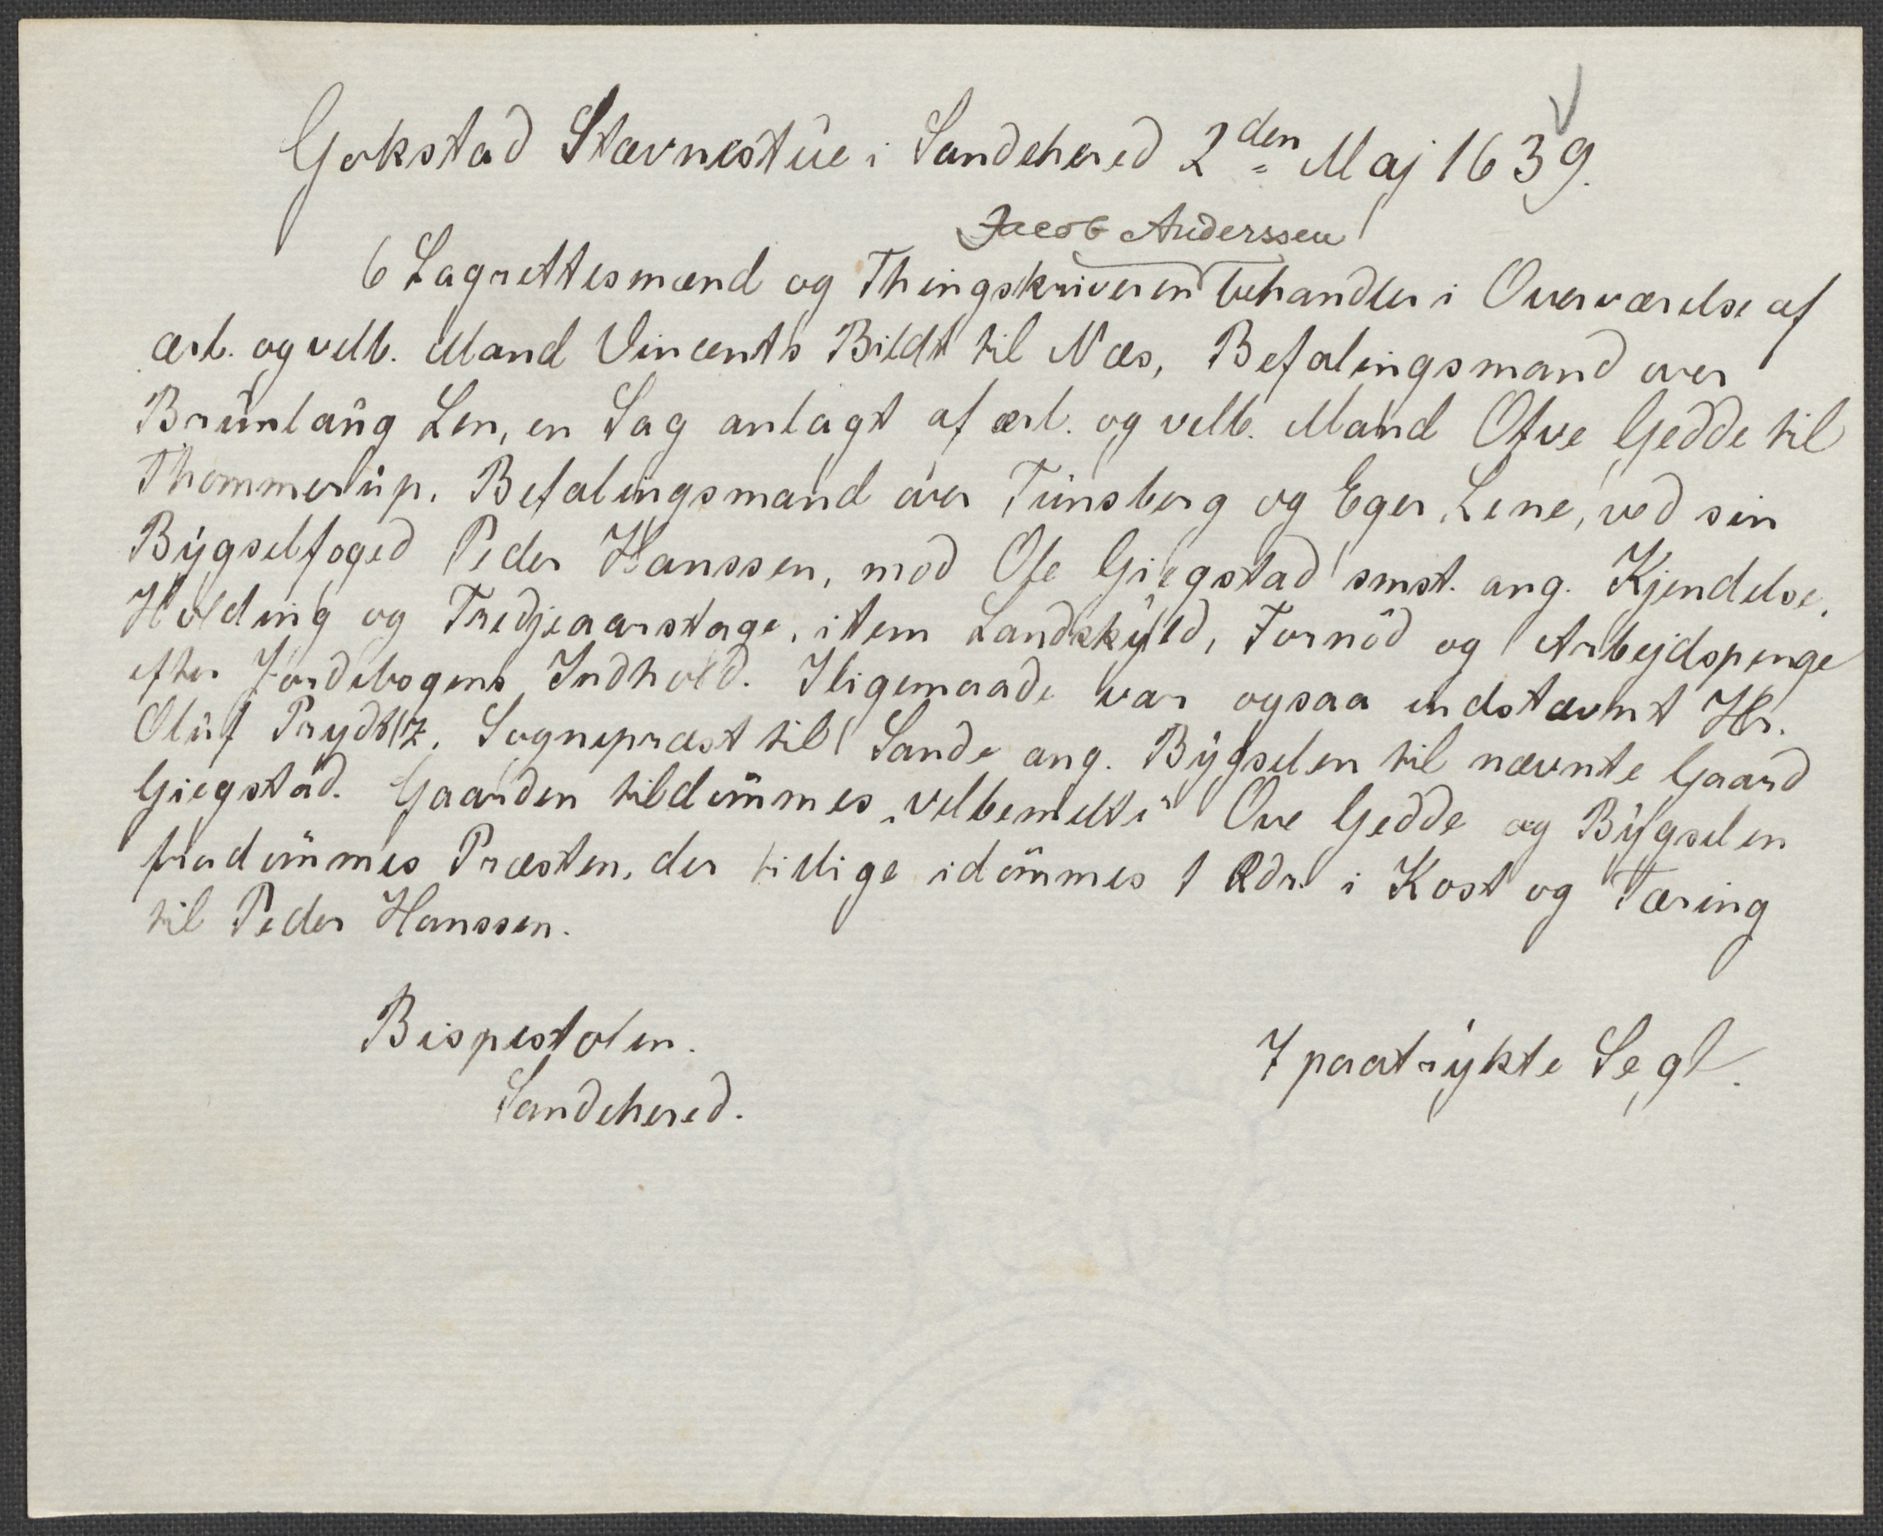 Gokstad Stævnestue i Sandehered 2den Maj 1639.
Jacob Anderssen
6 Lagrettesmænd og Thingskriveren behandler i Overværelse af
ærl. og velb. Mand Vincents Bildt til Næs, Befalingsmand over
Brunlaug Len, en Sag anlagt af ærl. og velb. Mand Ofve Gedde til
Thommerup, Befalingsmand over Tunsberg og Eger Lene, ved sin
Bygselfoged Peder Hanssen, mod Ole Giegstad smst. ang. Kjendelse,
Holding og Tredjeaarstage, item Landskyld, Fornöd og Arbejdspenge
efter Jordebogens Indhold. Iligemaade var ogsaa indstævnt Hr.
Oluf Prydtz, Sognepræst til Sande ang. Bygselen til nævnte Gaard
Giegstad. Gaarden tildömmes „velbemelte“ Ove Gedde og Bygselen
fradömmes Præsten, der tillige idömmes 1 Rdr. i Kost og Tæring
til Peder Hanssen.
Bispestolen.
7 paatrykte Segl.
Sandehered.